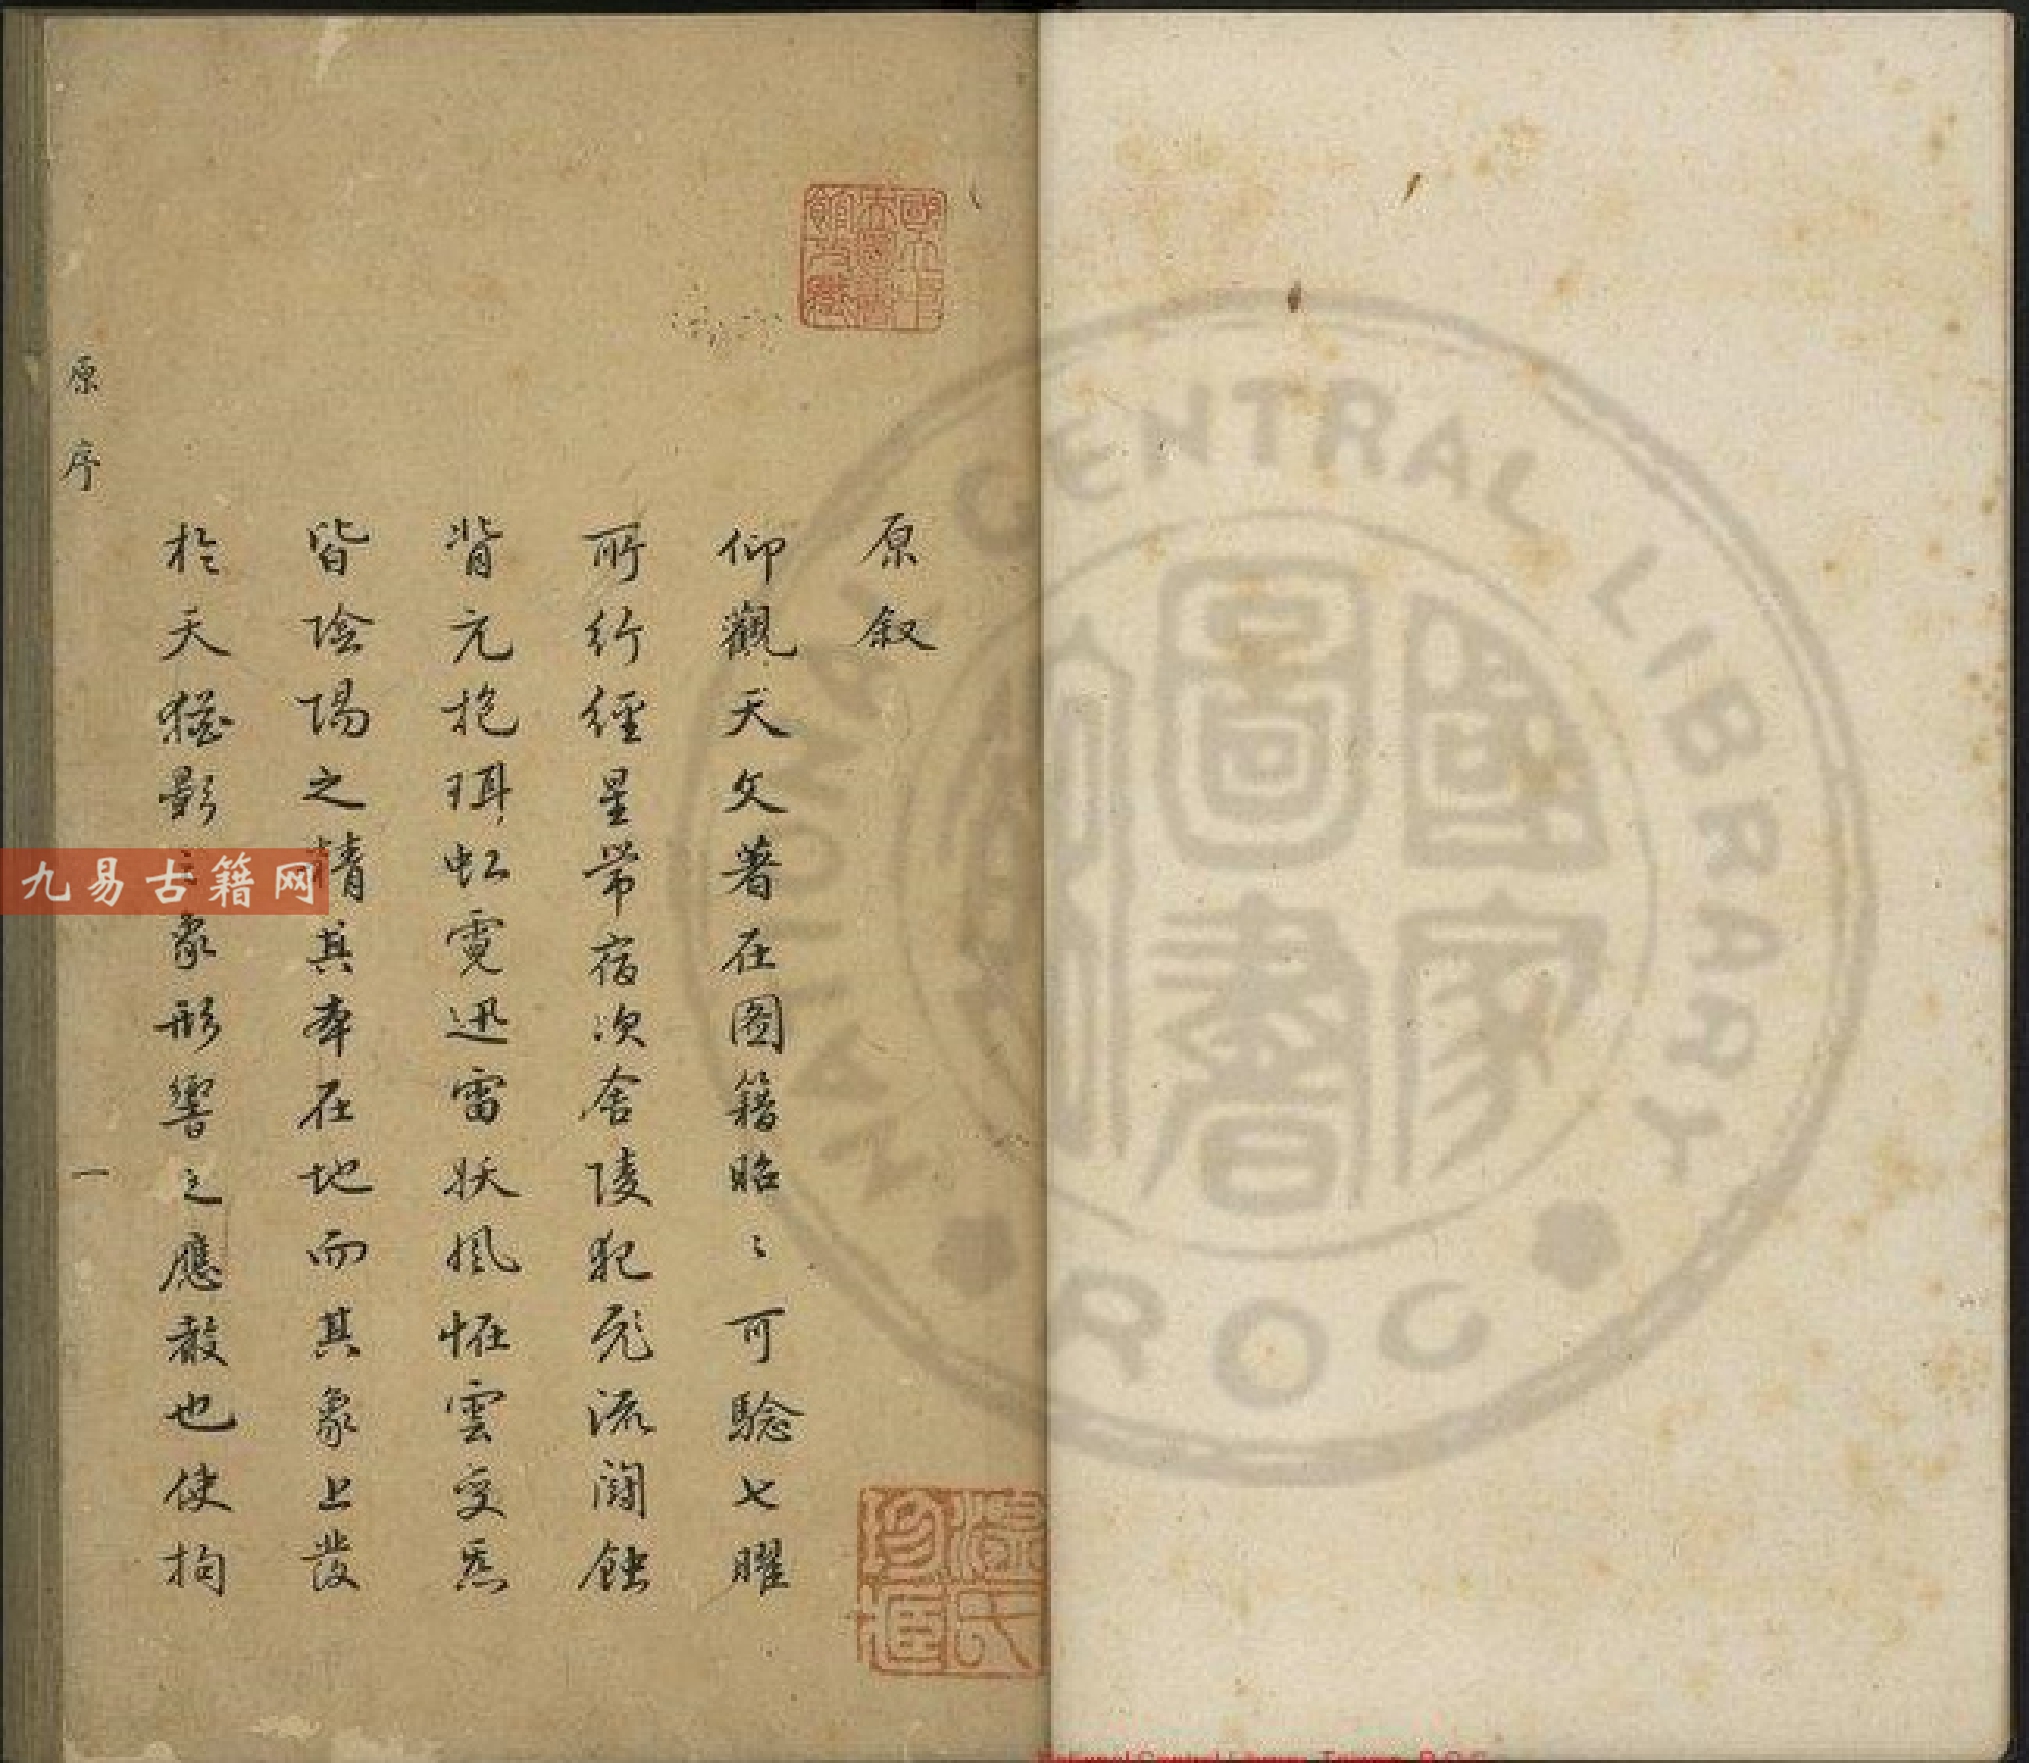 國立中央圖書館收藏
原叙
仰觀天文著在圖籍昭〻可驗七曜
所行經星常宿次舍陵犯飛流鬪蝕
背元抱珥虹霓迅雷妖風恠雲变炁
皆陰陽之精其本在地而其象上發
於天猶影之象形響之應也使拘
原序
一
九易古籍网
國家圖書
NATIONAL CENTRAL LIBRARY
ROC
National Central Library, Taiwan, R.O.C.